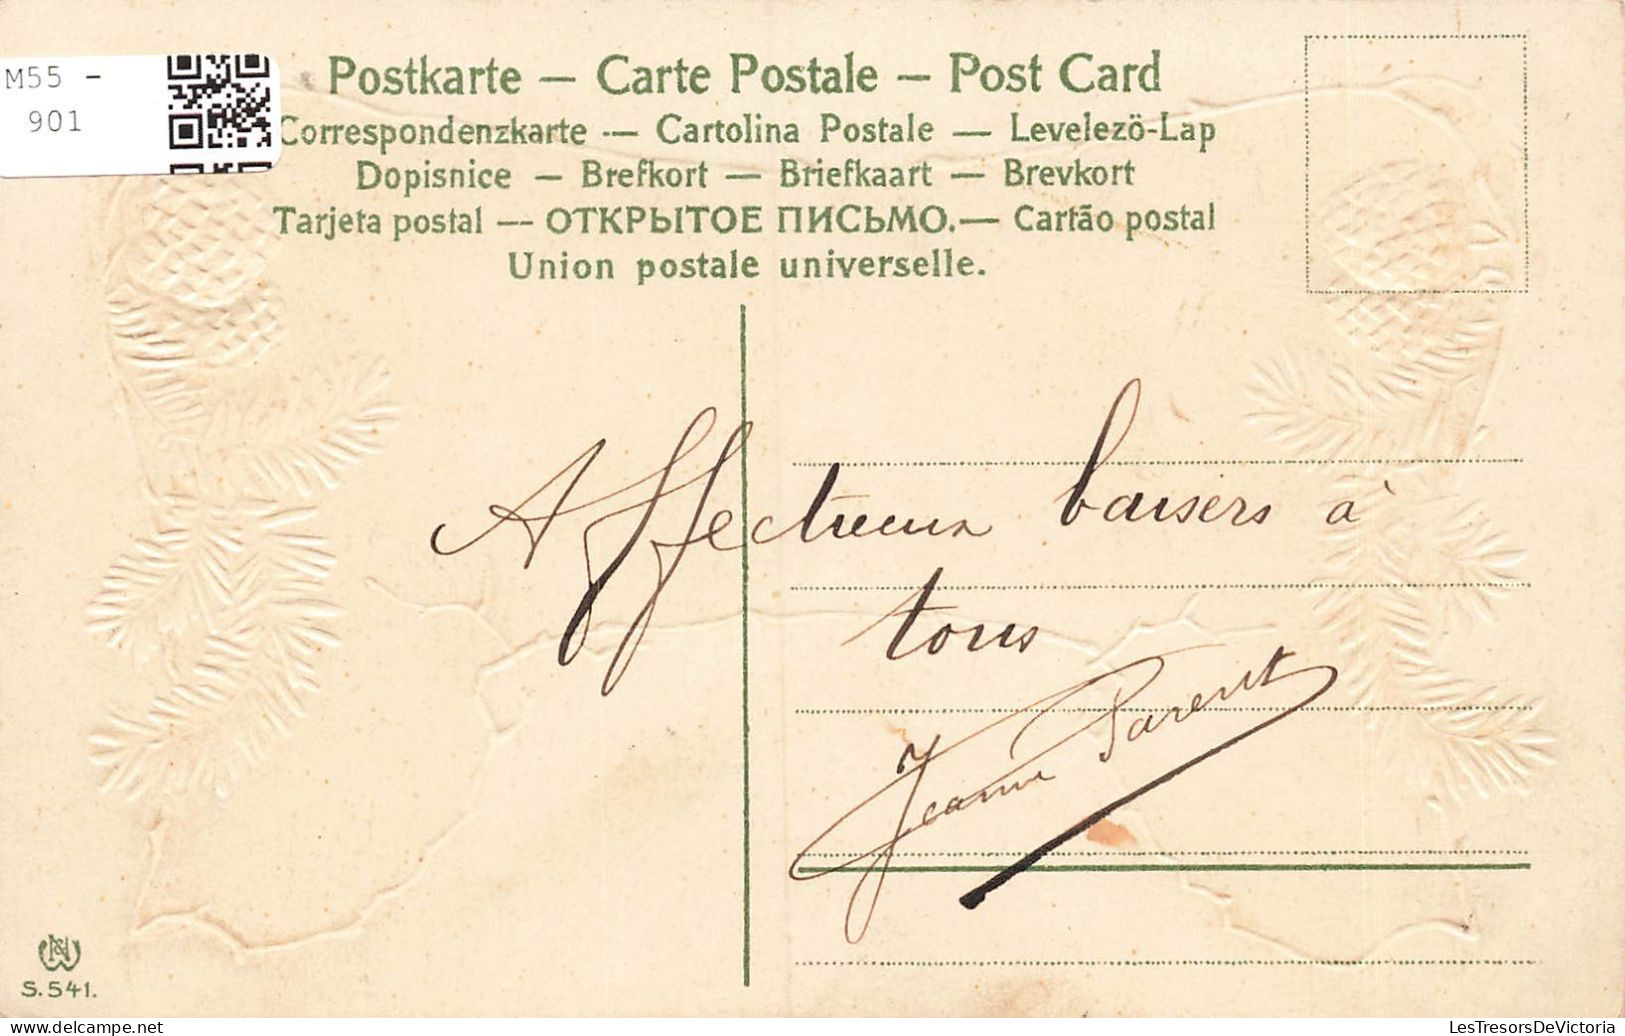 M55 -
901
Postkarte — Carte Postale — Post Card
Correspondenzkarte — Cartolina Postale — Levelezö-Lap
Dopisnice — Brefkort — Briefkaart — Brevkort
Tarjeta postal — ОТКРЫТОЕ ПИСЬМО. — Cartão postal
Union postale universelle.
Affectueux baisers à
tous
Jeanne Parent
S. 541.
delcampe.net
LesTresorsDeVictoria